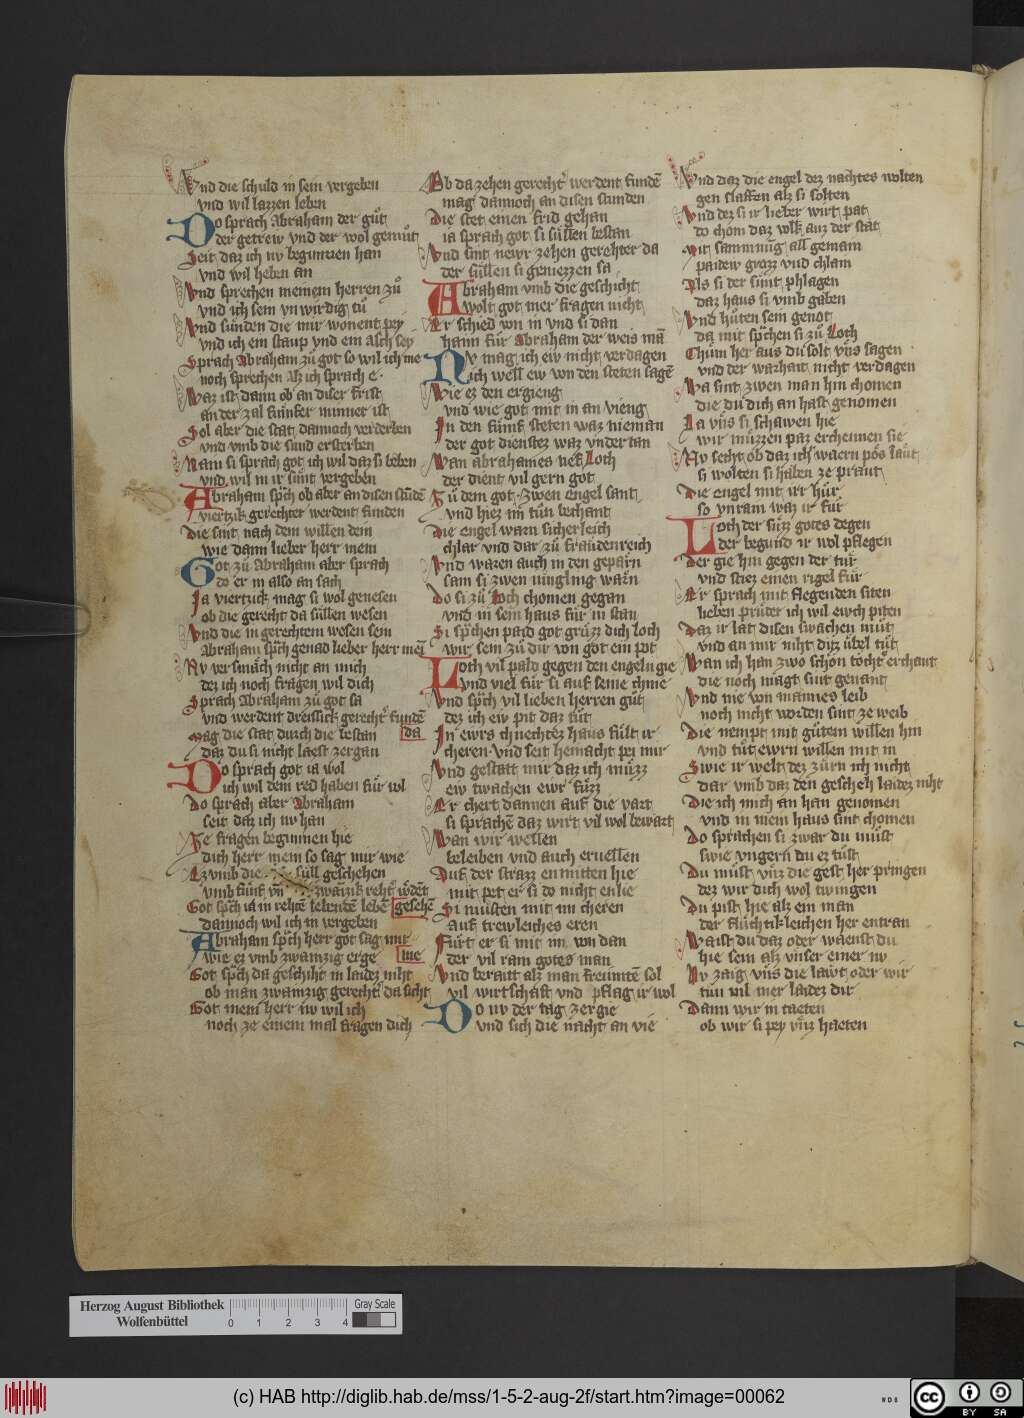 Vnd die schuld in sein vergeben
vnd wil lazzen leben
Do sprach Abraham der gůt
der getrew vnd der wol gemůt
Seit daz ich nv begunnen han
vnd wil heben an
Vnd sprechen meinem herren zů
vnd ich sein vnwirdig tů
Vnd sunden die mir wonent pey
vnd ich ein staup vnd ein Asch sey
Sprach Abraham zů got so wil ich me
noch sprechen Alz ich sprach e
Waz ist dann ob an diser frist
an der zal fünfer minner ist
Sol aber die stat dannoch verderben
vnd vmb die sünd ersterben
Nain si sprach got ich wil daz si leben
vnd wil in ir sünt vergeben
Abraham sp̄ch ob aber an disen stūde
viertzik gerechter werdent funden
Die sint nach dem willen dein
wie dann lieber herr mein
Got zů Abraham aber sprach
do er in also an sach
Ja viertzick mag si wol genesen
ob die gerecht da süllen wesen
Vnd die in gerechtem wesen sein
Abraham sp̄ch genad lieber herr mei
Nv versmäch nicht an mich
dez ich noch fragen wil dich
Sprach Abraham zů got sa
vnd werdent dreissick gerecht' fundē
Mag die stat durch die bestan da
daz du si nicht laest zergan
Do sprach got ia wol
ich wil dem red haben für vol
Do sprach aber Abraham
seit daz ich nv han
Ze fragen beginnen hie
dich herr mein so sag mir wie
Ez vmb die süll geschehen
vmb fünf vn̄ zwaīzik reht' w̄dēt
Got sp̄ch ia in rehtē lebendē lebē gesehē
dannoch wil ich in vergeben
Abraham sp̄ch herr got sag mir
wie ez vmb zwainzig erge hie
Got sp̄ch da geschiht in laidez niht
ob man zwainzig gerecht' da siht
Got mein herr nv wil ich
noch ze einem mal fragen dich
Ob da zehen gerecht' werdent fundē
mag dannoch an disen stunden
Die stet einen frid gehan
ia sprach got si süllen bestan
Vnd sint newr zehen gerehter da
der süllen si geniezzen sa
Abraham vmb die geschicht
wolt got mer fragen nicht
Er schied von in vnd si dan
hann für Abraham der weis mā
Nv mag ich ew nicht verdagen
ich well ew von den steten sagē
Wie ez den ergieng
vnd wie got mit in an vieng
In den fünf steten waz nieman
der got dienstez waz vndertan
Wan abrahames nef Loth
der dient vil gern got
Zů dem got zwen engel sant
vnd hiez in tůn bechant
Die engel warn sicherleich
chlar vnd dar zů fraüdenreich
Vnd waren auch in den gepärn
sam si zwen iüngling wärn
Do si zů Loth chomen gegan
vnd in sein haus für in stan
Si sp̄chen paid got grüzz dich Loth
wir sein zů dir von got ein pot
Loth vil pald gegen den engeln gie
vnd viel für si auf seine chnie
Vnd sp̄ch vil lieben herren gůt
dez ich ew pit daz tůt
In ewrs chnechtez haus fült ir
cheren vnd seit heinacht pey mir
Vnd gestatt mir daz ich müzz
ew twachen ewr füzz
Er chert dannen auf die vart
si sprachē daz wirt vil wol bewart
Wan wir wellen
beleiben vnd auch eruellen
Auf der strazz enmitten hie
mit pet er si do nicht enlie
Si müsten mit im cheren
auf trewleiches eren
Fürt er si mit im von dan
der vil ram gotes man
Vnd berait alz man freuntē sol
vil wirtschaft vnd pflag ir wol
Do nv der tag zergie
vnd sich die nacht an vie
Vnd daz die engel dez nachtes wolten
gen slaffen alz si solten
Vnd dez si ir lieber wirt pat
do chom daz volk auz der stat
Mit sammnüg all gemain
paidew grozz vnd chlain
Als si der sünt phlagen
daz haus si vmb gaben
Vnd hůten sein genot
da mit sp̄chen si zů Loth
Chüm her aus du solt vns sagen
vnd der warhait nicht verdagen
Wa sint zwen man hin chomen
die du dich an hast genomen
La vns si schawen hie
wir müzzen paz erchennen sie
Ny secht ob daz ich waern pös laüt
si wolten si haben ze praut
Die engel mit irr hür
so vnram waz ir für
Loth der süzz gotes degen
der begund ir wol pflegen
Der gie hin gegen der tür
vnd stiez einen rigel für
Er sprach mit flegenden siten
lieben prüder ich wil ewch piten
Daz ir lat disen swachen müt
vnd an mir niht ditz übel tůt
Wan ich han zwo schön töcht' erchant
die noch magt sint genant
Vnd nie von mannes leib
noch nicht worden sint ze weib
Die nempt mit gütem willen hin
vnd tůt ewrn willen mit in
Swie ir welt dez zürn ich nicht
dar vmb daz den gescheh laidez niht
Die ich mich an han genomen
vnd in mein haus sint chomen
Do sprachen si zwar du müst
swie vngern du ez tůst
Du müst vns die gest her pringen
dez wir dich wol twingen
Du pist hie alz ein man
der flüchtikleichen her entran
Waist du daz oder waenst du
hie sein alz vnser einer nv
Nv zaig vns die laüt oder wir
tün vil mer laidez dir
Dann wir in taeten
ob wir si pey vns haeten
Herzog August Bibliothek
Wolfenbüttel
0 1 2 3 4
Gray Scale
(c) HAB http://diglib.hab.de/mss/1-5-2-aug-2f/start.htm?image=00062
WDB
cc BY SA